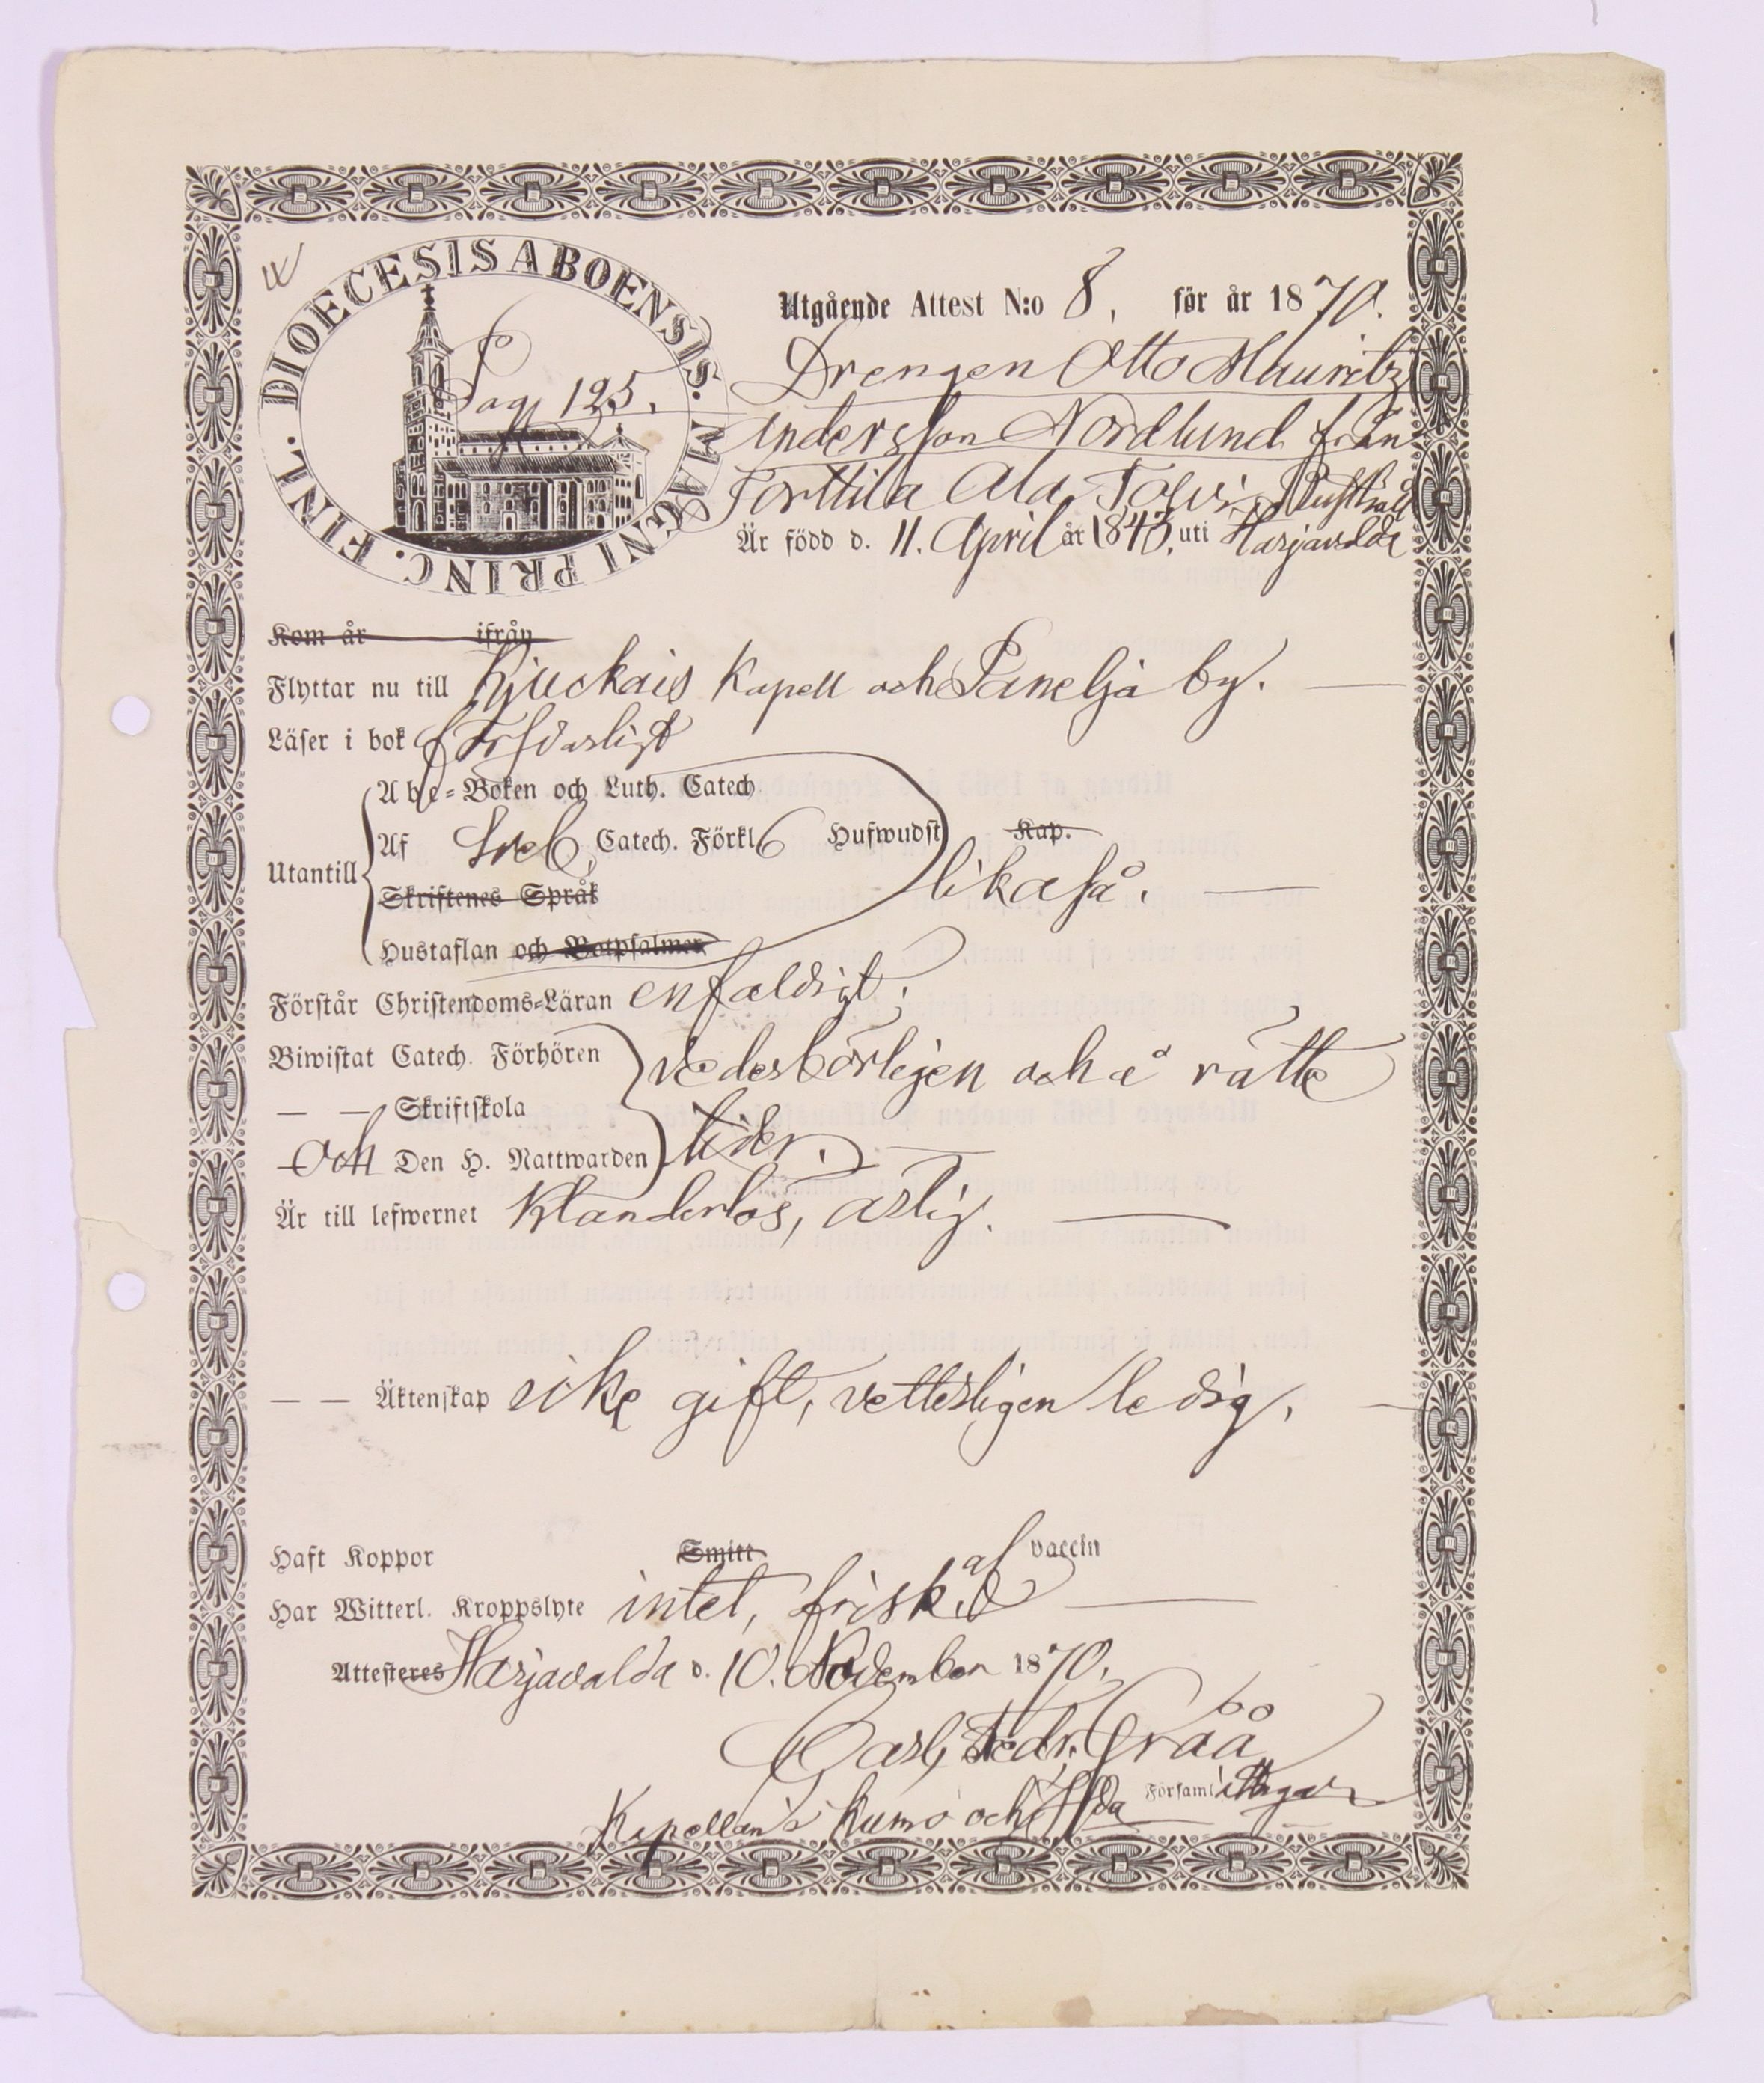 DIOECESIS ABOENSIS. MAGNI PRINC. FINL.
Pag 125.
Utgående Attest N:o 8. för år 1870.
Drengen Otto Mauritz
Andersson Nordlund från
Torttila Ala
Är född d. 11. April år 1843, uti Harjavalda
Kom år ifrån
Flyttar nu till Kjuckais Kapell och Panelja by.
Läser i bok försvarligt
Abc-Boken och Luth. Catech
Af Sveb. Catech. Förkl 6 Hufwudst Kap.
Utantill likaså.
Skriftenes Språk
Hustaflan och Botpsalmer
Förstår Christendoms-Läran enfaldigt.
Biwistat Catech. Förhören vederbörligen och å rätte
— — Skriftskola
och Den H. Nattwarden tider.
Är till lefwernet klanderlös, ärlig.
— — Äktenskap icke gift, vetterligen ledig.
Haft Koppor Smitt af vaccin
Har Witterl. Kroppslyte intet, frisk.
Attesteres Harjavalda d. 10. November 1870.
Carl Fedr. Gråå
Kapellan i Kumo och Hda Församlingar